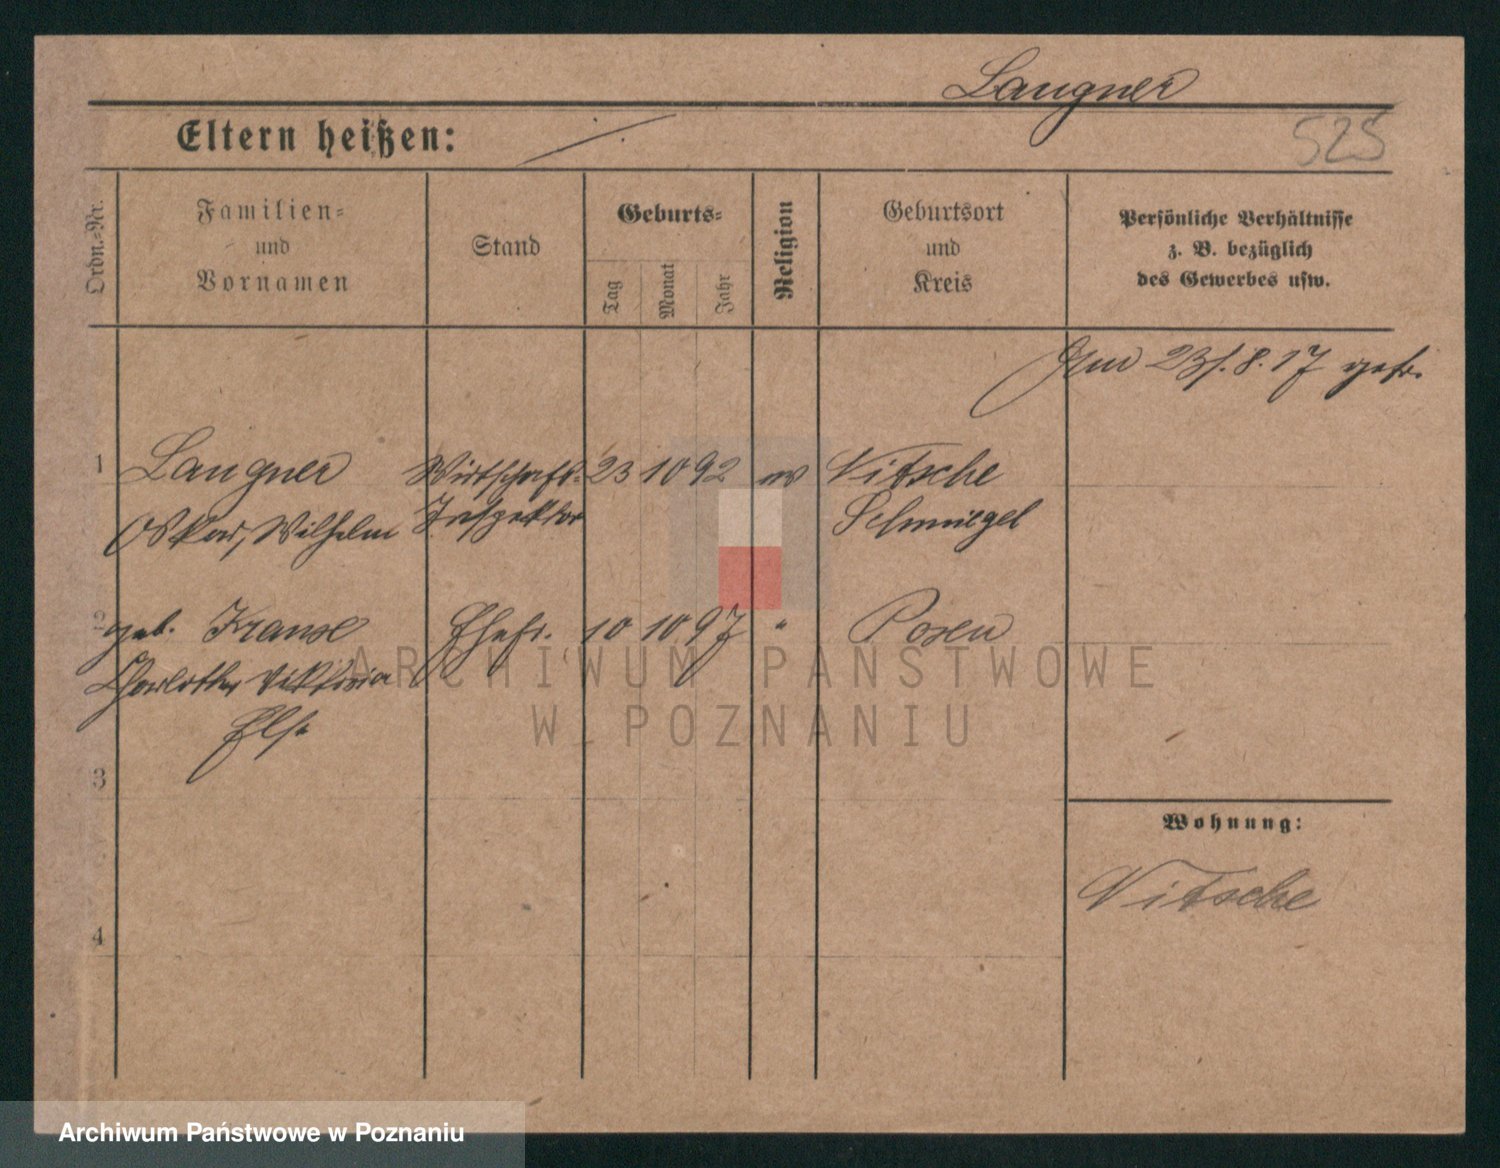 Langner
Eltern heißen:
525
Ordn.-Nr.
Familien-
und
Vornamen
Stand
Geburts-
Tag
Monat
Jahr
Religion
Geburtsort
und
Kreis
Persönliche Verhältnisse
z. B. bezüglich
des Gewerbes usw.
23/.8.17 getr.
1 Langner Wirtschafts- 23 10 92 ev Nitsche
Oskar, Wilhelm Inspektor Schmiegel
2 geb. Krause Ehefr. 10 10 97 " Posen
Charlotte Viktoria
Else
3
Wohnung:
Nitsche
4
ARCHIWUM PAŃSTWOWE
W POZNANIU
Archiwum Państwowe w Poznaniu